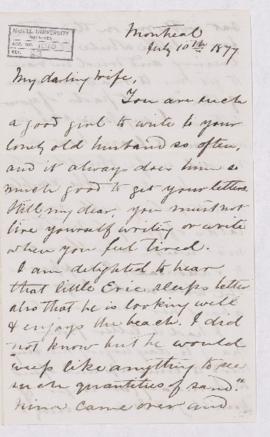 McGILL UNIVERSITY
ARCHIVES
ACC. NO.
REF.
Montreal
July 10th 1877
My darling Wife,
You are such
a good girl to write to your
lonely old husband so often,
and it always does him so
much good to get your letters
Still my dear, you must not
tire yourself writing or write
when you feel tired.
I am delighted to hear
that little Eric sleeps better
also that he is looking well
& enjoys the beach. I did
not know but he would
"weep like anything to see
such quantities of sand."
came over and